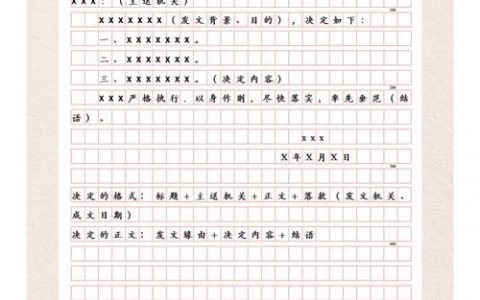 xxx：（主送机关）
xxxxxxx（发文背景、目的），决定如下：
一、xxxxxxx。
二、xxxxxxx。
三、xxxxxxx。（决定内容）
xxx严格执行．以身作则，尽快落实，率先垂范（结
语）。
xxx
X年X月X日
决定的格式：标题+主送机关+正文+落款（发文机关、
成文日期）
决定的正文：发文缘由+决定内容+结语